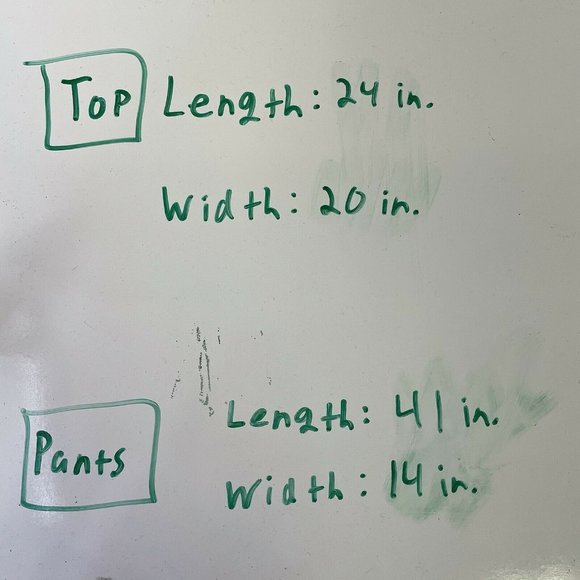 Top Length: 24 in.
Width: 20 in.
Pants
Length: 41 in.
Width: 14 in.